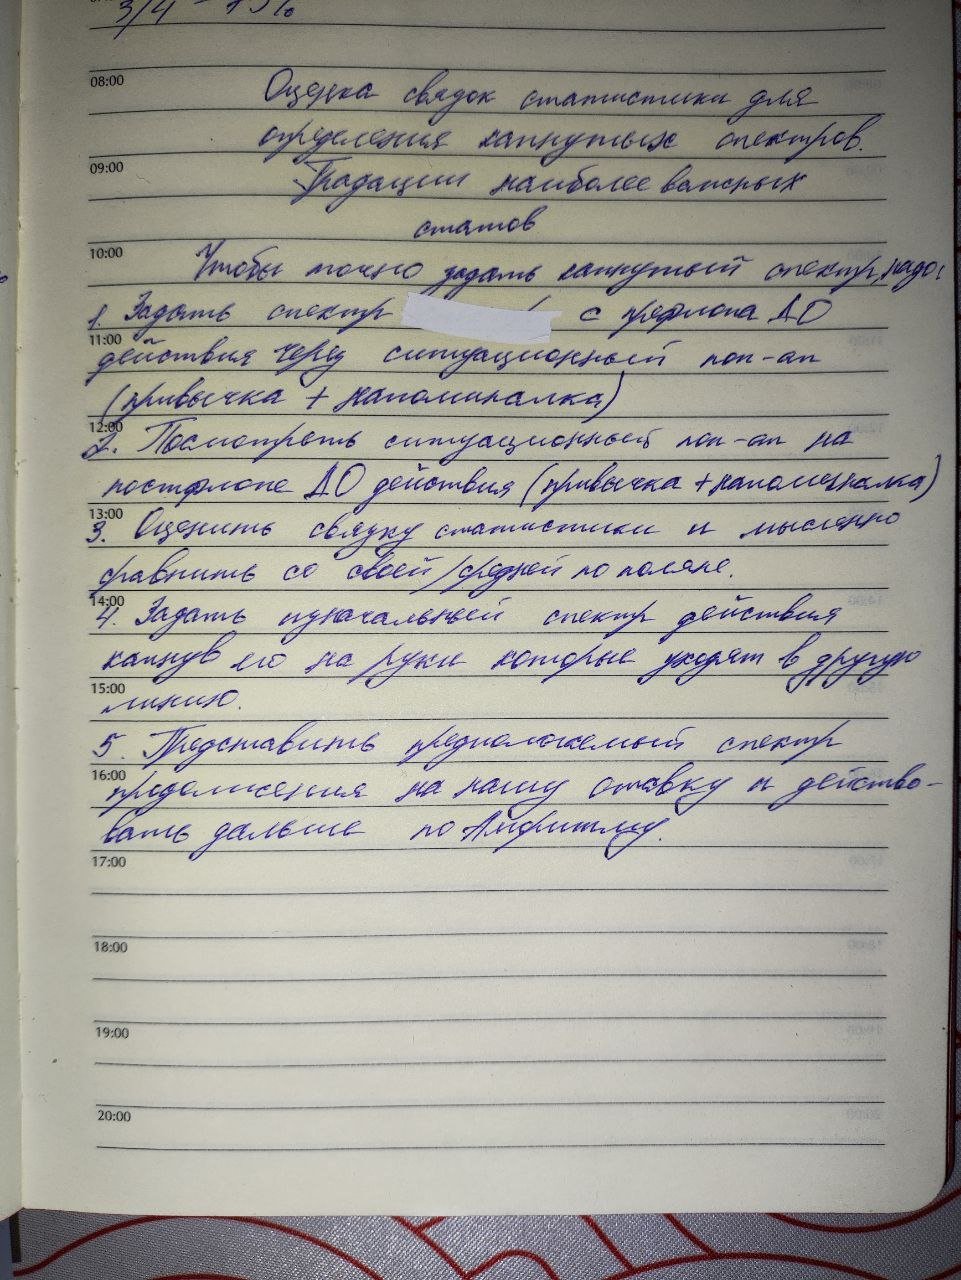 3/4 - 75%
08:00
Оценка связок статистики для
определения капнутых спектров.
09:00
Градации наиболее важных
статов
10:00
Чтобы точно задать капнутый спектр, надо:
1. Задать спектр с префлопа ДО
11:00
действия через ситуационный поп-ап
(привычка + напоминалка)
12:00
2. Посмотреть ситуационный поп-ап на
постфлопе ДО действия (привычка + напоминалка)
13:00
3. Оценить связку статистики и мысленно
сравнить со своей/средней по поляне.
14:00
4. Задать изначальный спектр действия
капнув его на руки которые уходят в другую
15:00
линию.
5. Представить предполагаемый спектр
16:00
продолжения на нашу ставку и действо-
вать дальше по Алгоритму.
17:00
18:00
19:00
20:00